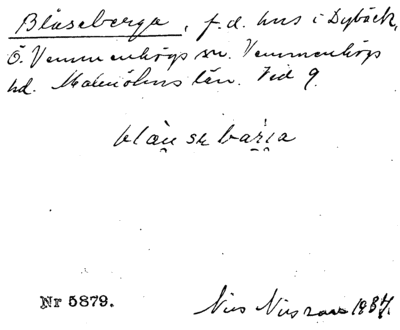 Blåseberga, f.d. hus i Dybäck,
Ö. Vemmenhögs sn. Vemmenhögs
hd. Malmöhus län. Vid 9.
Nr 5879.
Nils Nilsson 1934.